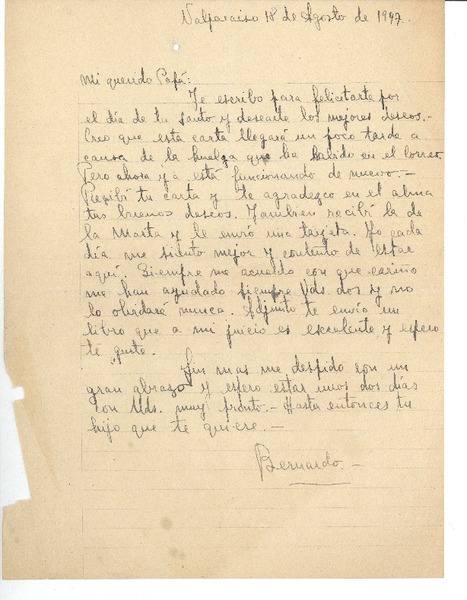 Valparaiso 18 de Agosto de 1947.
Mi querido Papá:
Te escribo para felicitarte por
el día de tu santo y desearte los mejores deseos.-
Creo que esta carta llegará un poco tarde a
causa de la huelga que ha habido en el correo.
Pero ahora ya está funcionando de nuevo.-
Recibí tu carta y te agradezco en el alma
tus buenos deseos. Tambien recibí la de
la Marta y le envió una tarjeta. Yo cada
día me siento mejor y contento de estar
aquí. Siempre me acuerdo con que cariño
me han ayudado siempre Uds. dos y no
lo olvidaré nunca. Adjunto te envío un
libro que a mi juicio es excelente y espero
te guste.
Sin mas me despido con un
gran abrazo y espero estar unos dos días
con Uds. muy pronto.- Hasta entonces tu
hijo que te quiere.-
Bernardo.-